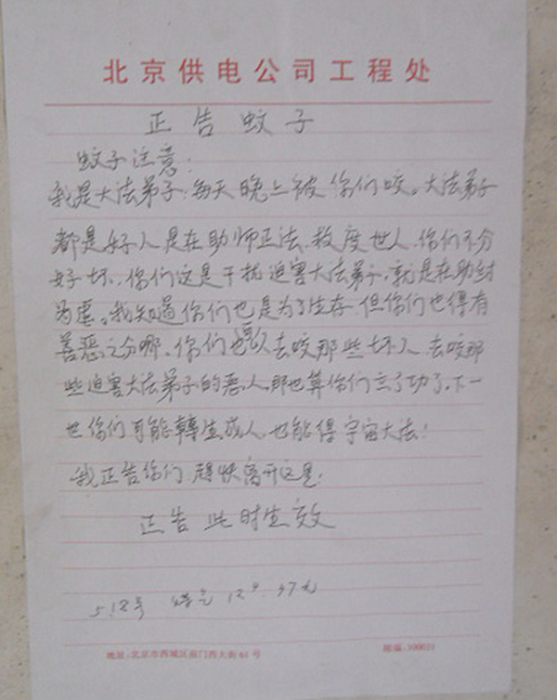 北京供电公司工程处
正告蚊子
蚊子注意:
我是大法弟子,每天晚上被你们咬。大法弟子
都是好人是在助师正法,救度世人,你们不分
好坏,你们这是干扰迫害大法弟子,就是在助纣
为虐。我知道你们也是为了生存,但你们也得有
善恶之分哪。你们可以去咬那些坏人,去咬那
些迫害大法弟子的恶人,那也算你们立了功了,下一
世你们可能轉生成人,也能得宇宙大法!
我正告你们,趕快离开这里。
正告此时生效
5.12号 12
地址:北京市西城区前门西大街41号
邮编:100031